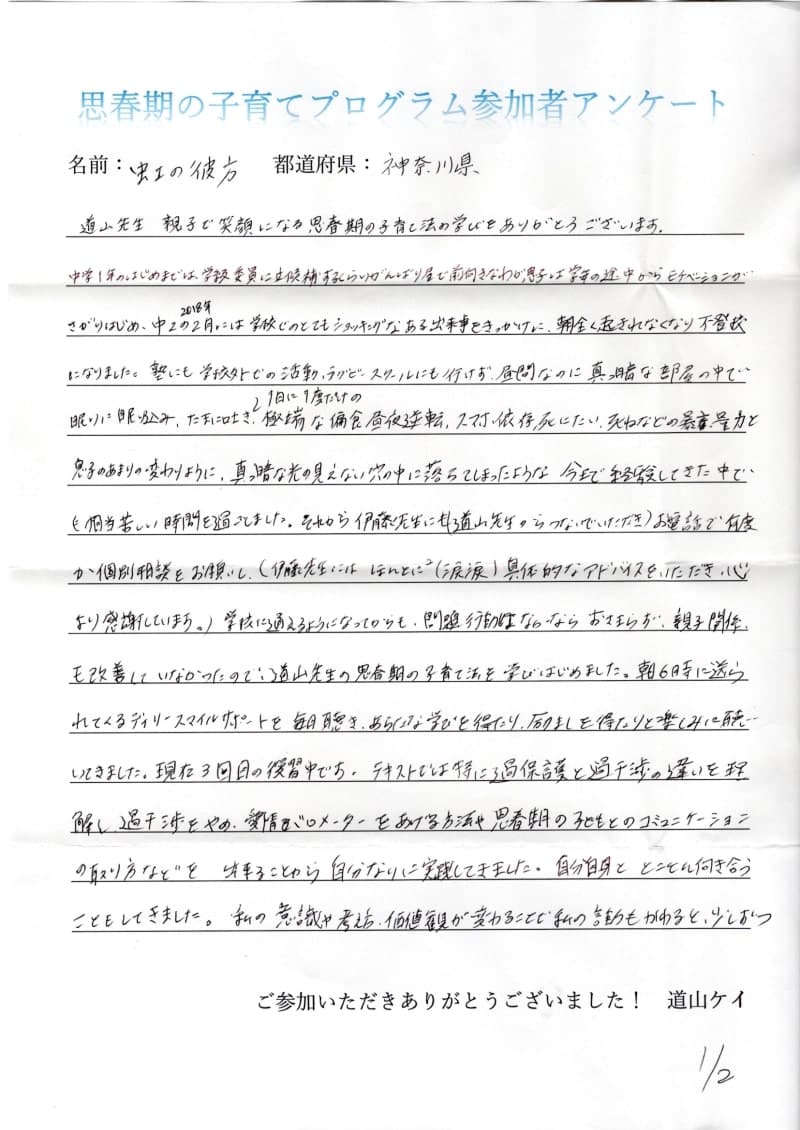 思春期の子育てプログラム参加者アンケート
名前：虹の彼方　都道府県：神奈川県
道山先生　親子で笑顔になる思春期の子育て法の学びをありがとうございます。
中学1年のはじめまでは、学級委員に立候補するくらいがんばり屋で前向きなわが息子は学年の途中からモチベーションが
2018年
さがりはじめ、中2の2月には学校でのとてもショッキングなある出来事をきっかけに、朝全く起きれなくなり不登校
になりました。塾にも学校外での活動、ラグビースクールにも行けず、昼間なのに真っ暗な部屋の中で
1日に1度だけの
眠りに眠り込み、たまに吐き、極端な偏食、昼夜逆転、スマホ依存、死にたい、死ねなどの暴言、暴力と
息子のあまりの変わりように、真っ暗な光の見えない穴の中に落ちてしまったような 今まで経験してきた中で
も相当苦しい時間を過ごしました。それから伊藤先生にも(道山先生からつないでいただき)お電話で何度
か個別相談をお願いし、(伊藤先生には ほんとに²(涙涙)具体的なアドバイスをいただき、心
より感謝しています。)学校に通えるようになってからも、問題行動はなかなかおさまらず、親子関係
も改善していなかったので、道山先生の思春期の子育て法を学びはじめました。朝6時に送ら
れてくるデイリースマイルサポートを毎日聴き、あらたな学びを得たり、励ましを得たりと楽しみに聴
いてきました。現在3回目の復習中です。テキストでは特に過保護と過干渉の違いを理
解し過干渉をやめ、愛情バロメーターをあげる方法や思春期の子どもとのコミュニケーション
の取り方などを 出来ることから自分なりに実践してきました。自分自身と とことん向き合う
こともしてきました。私の意識や考え方、価値観が変わることで私の言動もかわると、少しずつ
ご参加いただきありがとうございました！　道山ケイ
1/2